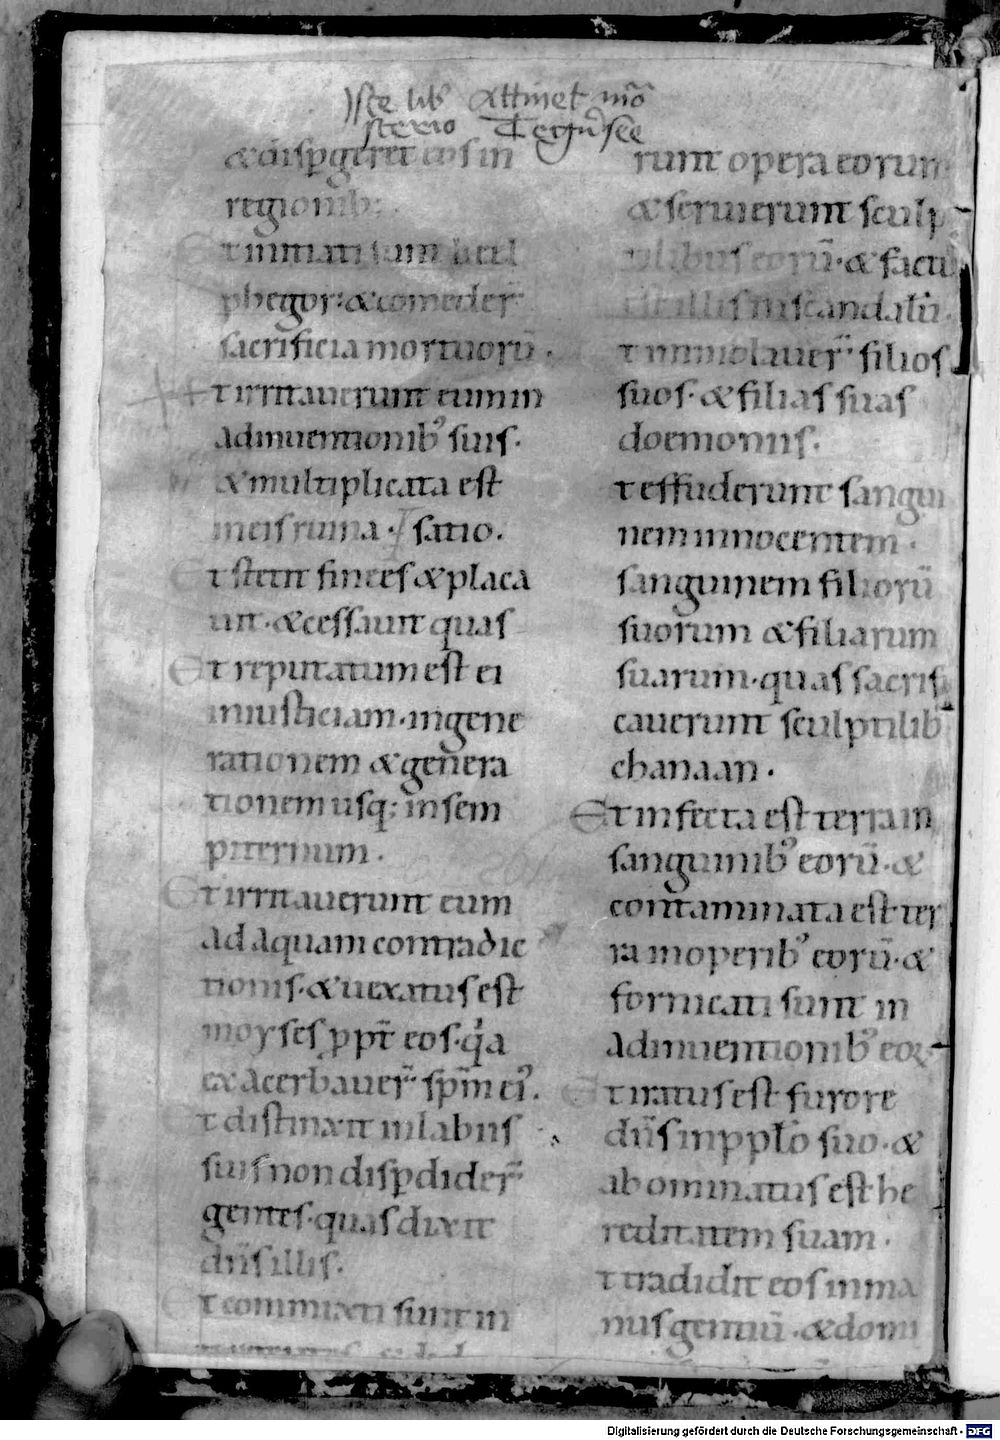 Iste lib̄ attinet mōn
sterio Tegr̄nsee
& dispgeret eos in
regionib;
Et initiati sunt beel
phegor: & comeder̄
sacrificia mortuorū.
Et irritauerunt eum in
adinuentionib' suis.
& multiplicata est
in eis ruina. satio.
Et stetit finees & placa
uit. & cessauit quas
Et reputatum est ei
in iusticiam. in gene
rationem & genera
tionem usq; in sem
piternum.
Et irritauerunt eum
ad aquam contradic
tionis. & uexatus est
moyses ppt̄ eos. q'a
exacerbauer̄ sp̄m ei'.
Et distinxit in labiis
suis non dispdider̄
gentes. quas dixit
dn̄s illis.
Et commixti sunt in
runt opera eorum
& seruierunt sculp
tilibus eorū. & factū
est illis in scandalū.
Et immolauer̄ filios
suos. & filias suas
doemoniis.
Et effuderunt sangui
nem innocentem.
sanguinem filiorū
suorum & filiarum
suarum. quas sacrifi
cauerunt sculptilib'
chanaan.
Et infecta est terra in
sanguinib' eorū. &
contaminata est ter
ra in operib' eorū. &
fornicati sunt in
adinuentionib' eoꝝ.
Et iratus est furore
dn̄s in pplō suo. &
abominatus est he
reditatem suam.
Et tradidit eos in ma
nus gentiū. & domi
Digitalisierung gefördert durch die Deutsche Forschungsgemeinschaft - DFG